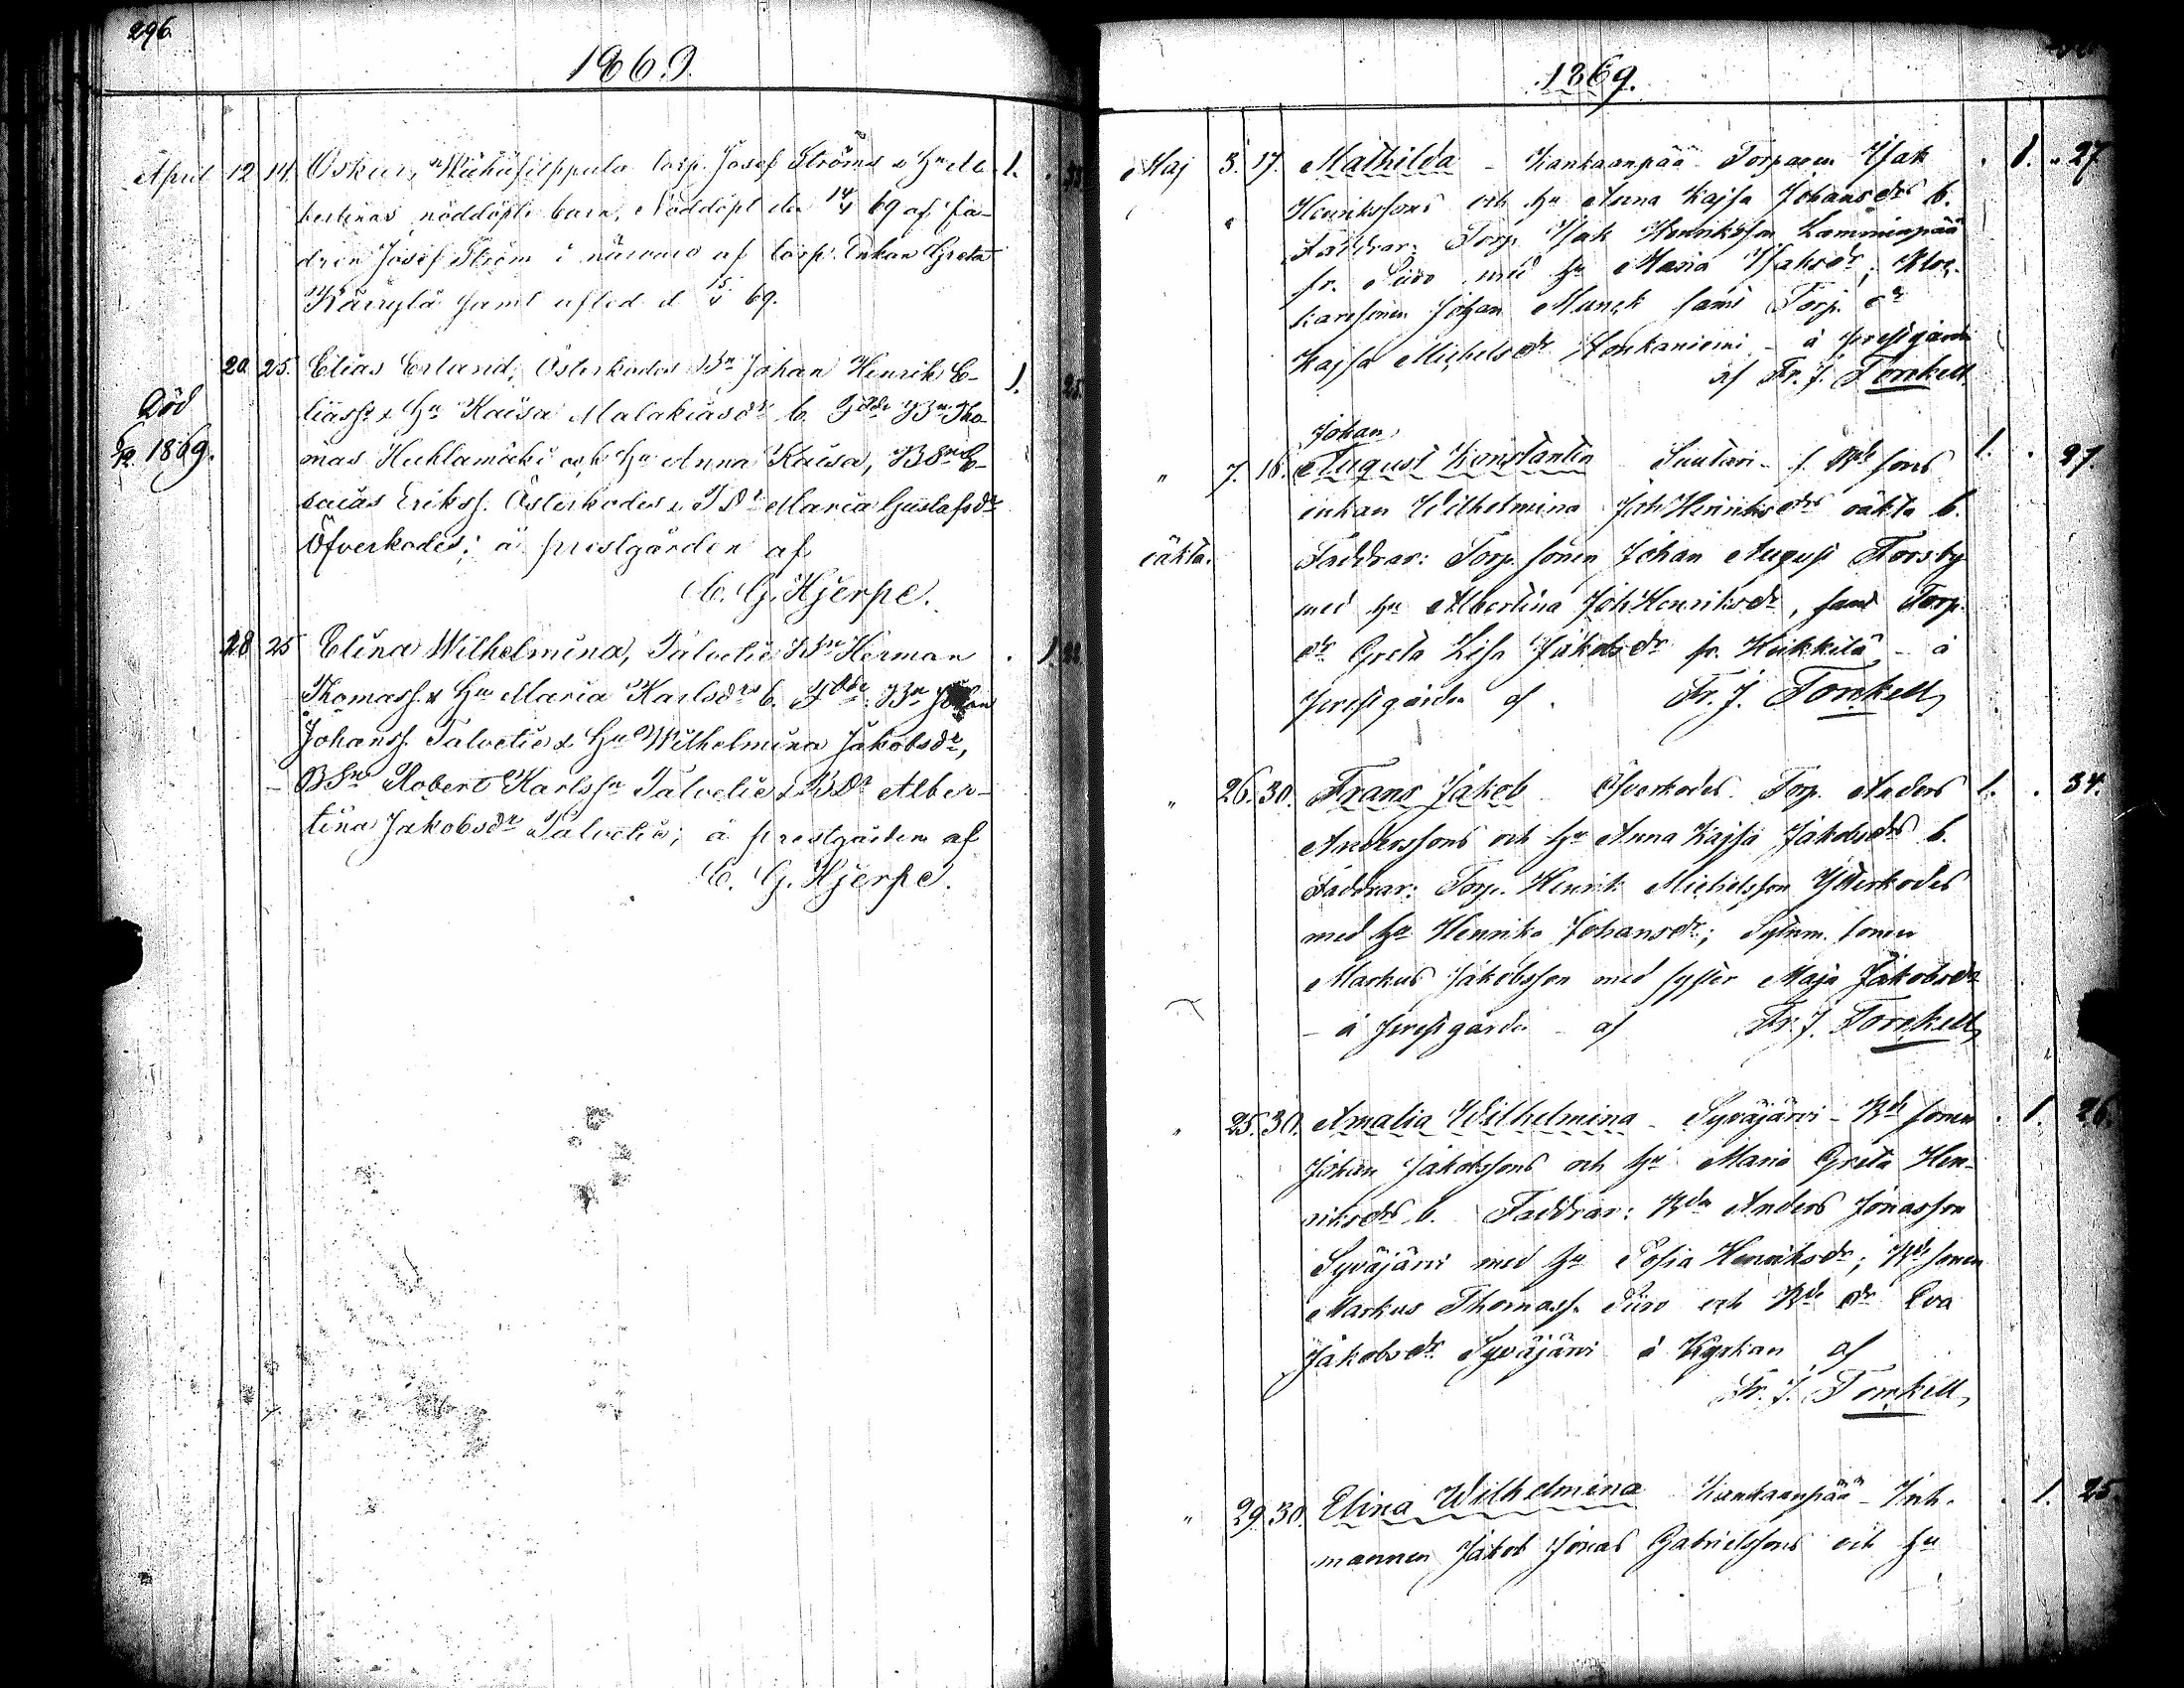 296.
1869.
April 12 14. Oskar, torp. Josef Ströms & Hu Al- 1.
bertinas nöddöpte barn, Nöddöpt den 14/4 69 af fa-
dren Josef Ström i närvaro af torp. Enkan Greta
Kärrylä samt afled d 15/4 69.
20. 25. Elias Erland, Österkodes Bn Johan Henrik E- 1. 25.
liass. & Hu Kaisa Malakiasdr b. Fddr Bn Tho-
Död
mas Huhlamäki och Hu Anna Kaisa, BSn E-
1869.
saias Erikss. Österkodes & TDr Maria Gustafsdr
Öfverkodes; å prestgården af
C. G. Hjerpe.
28 25 Elina Wilhelmina, Talvetie Herman 1.
Thomass. & Hu Maria Karlsdrs b. Fddr Bn Johan
Johanss. Talvetie & Hu Wilhelmina Jakobsdr,
BSn Robert Karlssn Talvetie & BDr Alber-
tina Jakobsdr Talvetie; å prestgården af
C. G. Hjerpe.
1869.
Maj 3. 17. Mathilda - Kankaanpää - Torparen Isak 1. 27
Henrikssons och hu Anna Kajsa Johansdrs b.
Faddrar: Torp. Isak Henriksson
fr. med hu Maria Isaksdr; Kloc-
karesonen Johan Munck samt Torp. dr
Kajsa Michelsdr Honkaniemi - å prestgården
af Fr. J. Forskell
Johan
" 7. 16. August Konstantin Suutari - f. Bde sons 1. 27.
enkan Wilhelmina Joh Henriksdrs oäkta b.
oäkta. Faddrar: Torp. sonen Johan August Forsby
med hu Albertina Joh Henriksdr, samt Torp.
dr Greta Lisa Jakobsdr fr. Heikkilä - å
prestgården af Fr. J. Forskell
" 26. 30. Frans Jakob - Öfverkodes. Torp. Anders 1. 34.
Anderssons och hu Anna Kajsa Jakobsdrs b.
Faddrar: Torp. Henrik Michelsson Ytterkodes
med hu Henrika Johansdr; sonen
Markus Jakobsson med syster Maja Jakobsdr
- å prestgården - af Fr. J. Forskell
" 25. 30. Amalia Wilhelmina - Syväjärvi - Bde sonen 1. 26.
Johan Jakobssons och hu Maria Greta Hen-
riksdrs b. Faddrar: Bdn Anders Jonasson
Syväjärvi med hu Sofia Henriksdr; Bde sonen
Markus Thomass. och Bde dr Eva
Jakobsdr Syväjärvi å Kyrkan af
Fr. J. Forskell
" 29. 30. Elina Wilhelmina Kankaanpää - Inh. 1. 25.
mannen Jakob Jonas Gabrielssons och hu